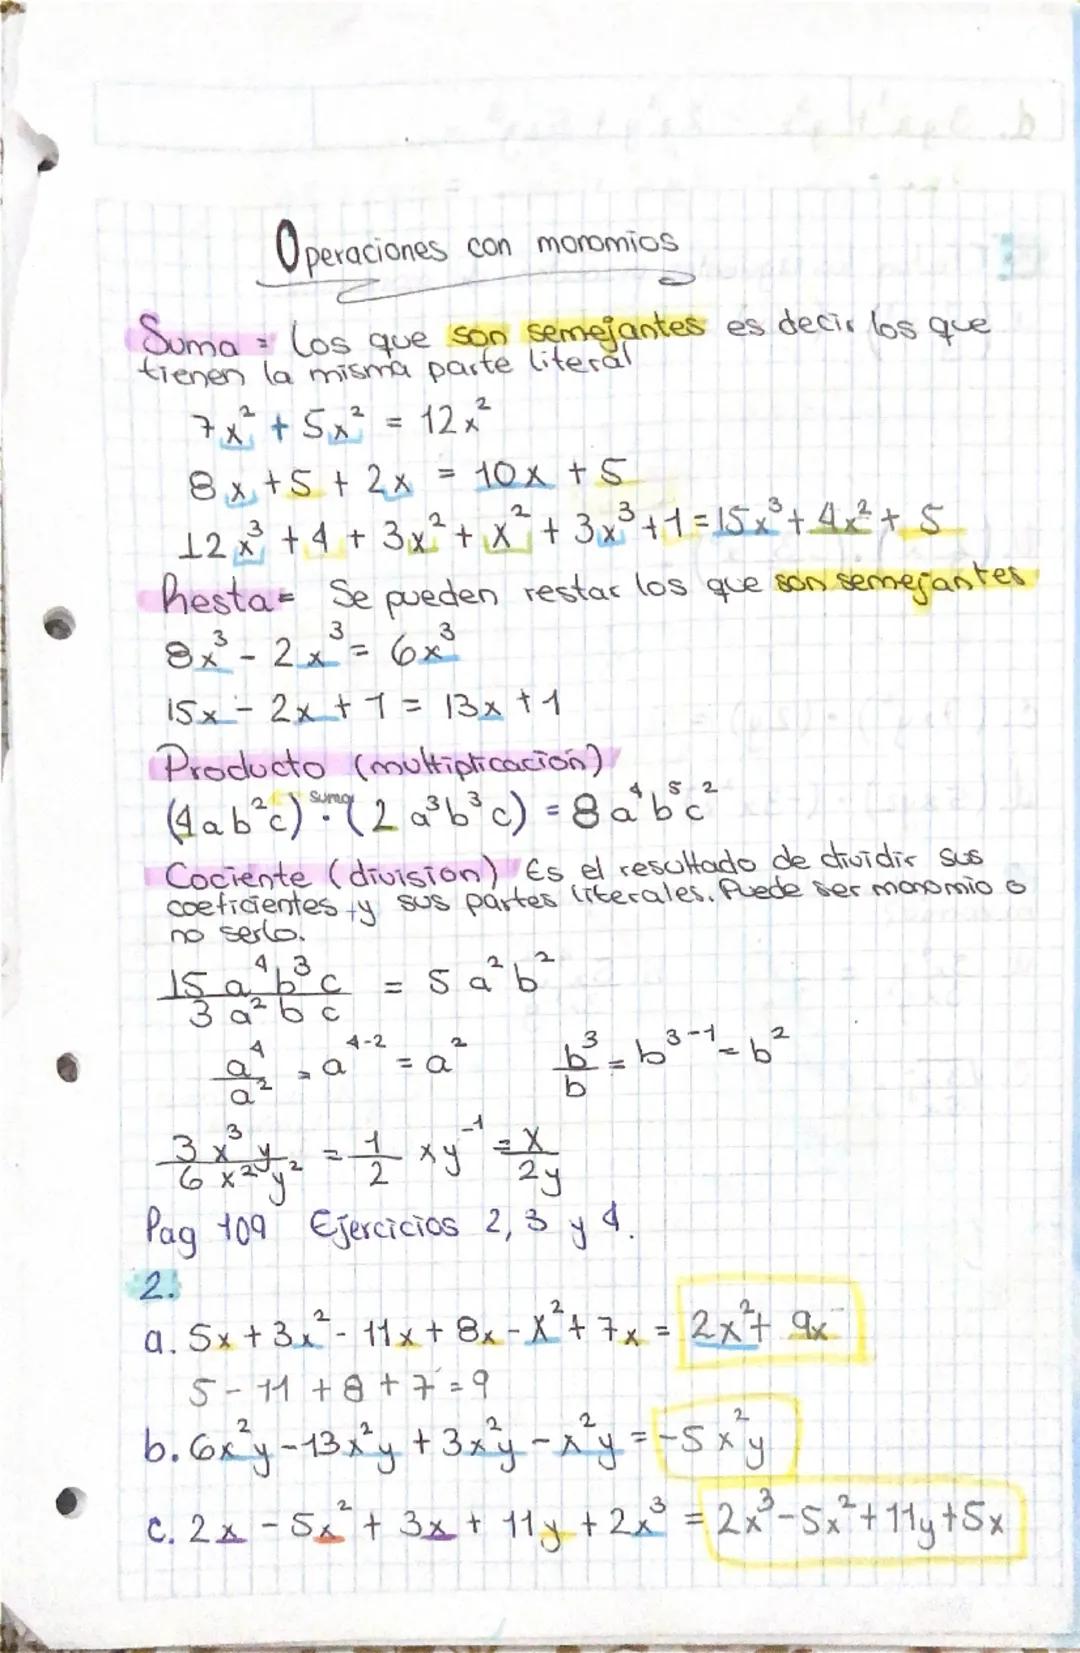 Operaciones con monomios
Suma = Los que son semejantes es decir los que
tienen la misma parte literal
7x² + 5x² = 12x²
8x + 5 + 2x = 10x + 5
12x³ + 4 + 3x² + x² + 3x³ + 1 = 15x³ + 4x² + 5
Resta = Se pueden restar los que son semejantes
8x³ - 2x³ = 6x³
15x - 2x + 1 = 13x + 1
Producto (multiplicación)
suma
(4ab²c) · (2a³b³c) = 8a⁴b⁵c²
Cociente (división) Es el resultado de dividir sus
coeficientes y sus partes literales. Puede ser monomio o
no serlo.
15a⁴b³c / 3a²bc = 5a²b²
a⁴/a² = a⁴⁻² = a² b³/b = b³⁻¹ = b²
3x³y / 6x²y² = 1/2 xy⁻¹ = x/2y
Pag 109 Ejercicios 2, 3 y 4.
2.
a. 5x + 3x² - 11x + 8x - x² + 7x = 2x² + 9x
5 - 11 + 8 + 7 = 9
b. 6x²y - 13x²y + 3x²y - x²y = -5x²y
c. 2x - 5x² + 3x + 11y + 2x³ = 2x³ - 5x² + 11y + 5x